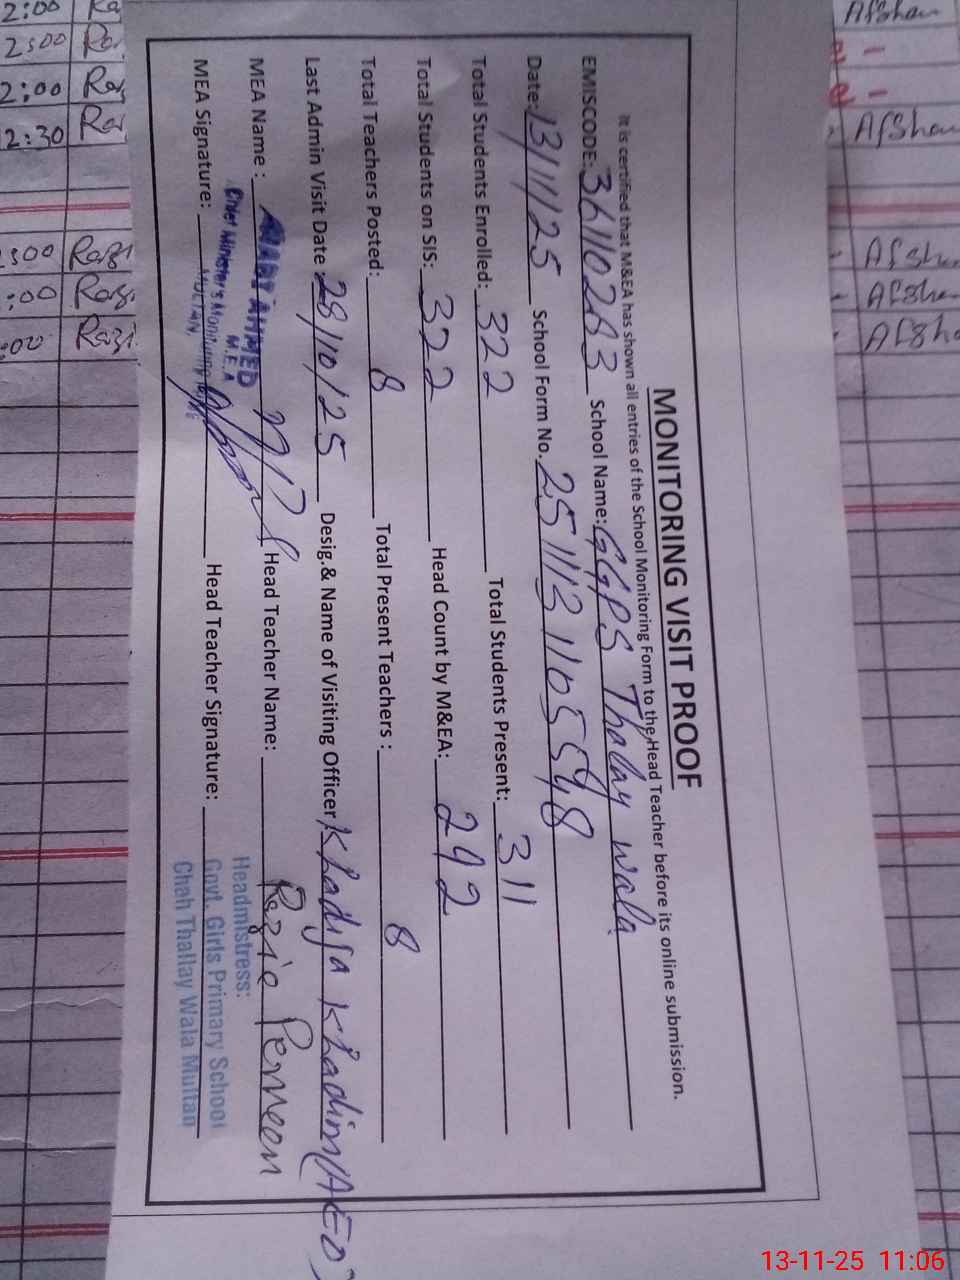 MONITORING VISIT PROOF
It is certified that M&EA has shown all entries of the School Monitoring Form to the Head Teacher before its online submission.
EMISCODE: 36110283 School Name: GGPS Thalay wala
Date: 13/11/25 School Form No. 2511131105548
Total Students Enrolled: 322 Total Students Present: 311
Total Students on SIS: 322 Head Count by M&EA: 292
Total Teachers Posted: 8 Total Present Teachers : 8
Last Admin Visit Date 28/10/25 Desig.& Name of Visiting Officer Khadija Khadim (AEO)
MEA Name : AHMED Head Teacher Name: Razie Perneen
M.E.A
Chief Minister's Monitoring
MULTAN
MEA Signature: Head Teacher Signature:
Headmistress:
Govt. Girls Primary School
Chah Thallay Wala Multan
2:00 Ra Afshan
2:00
2:00
2:30 Afshan
:00 Razi Afshan
:00 Razi Afshan
:00 Razi Afsha
13-11-25 11:06